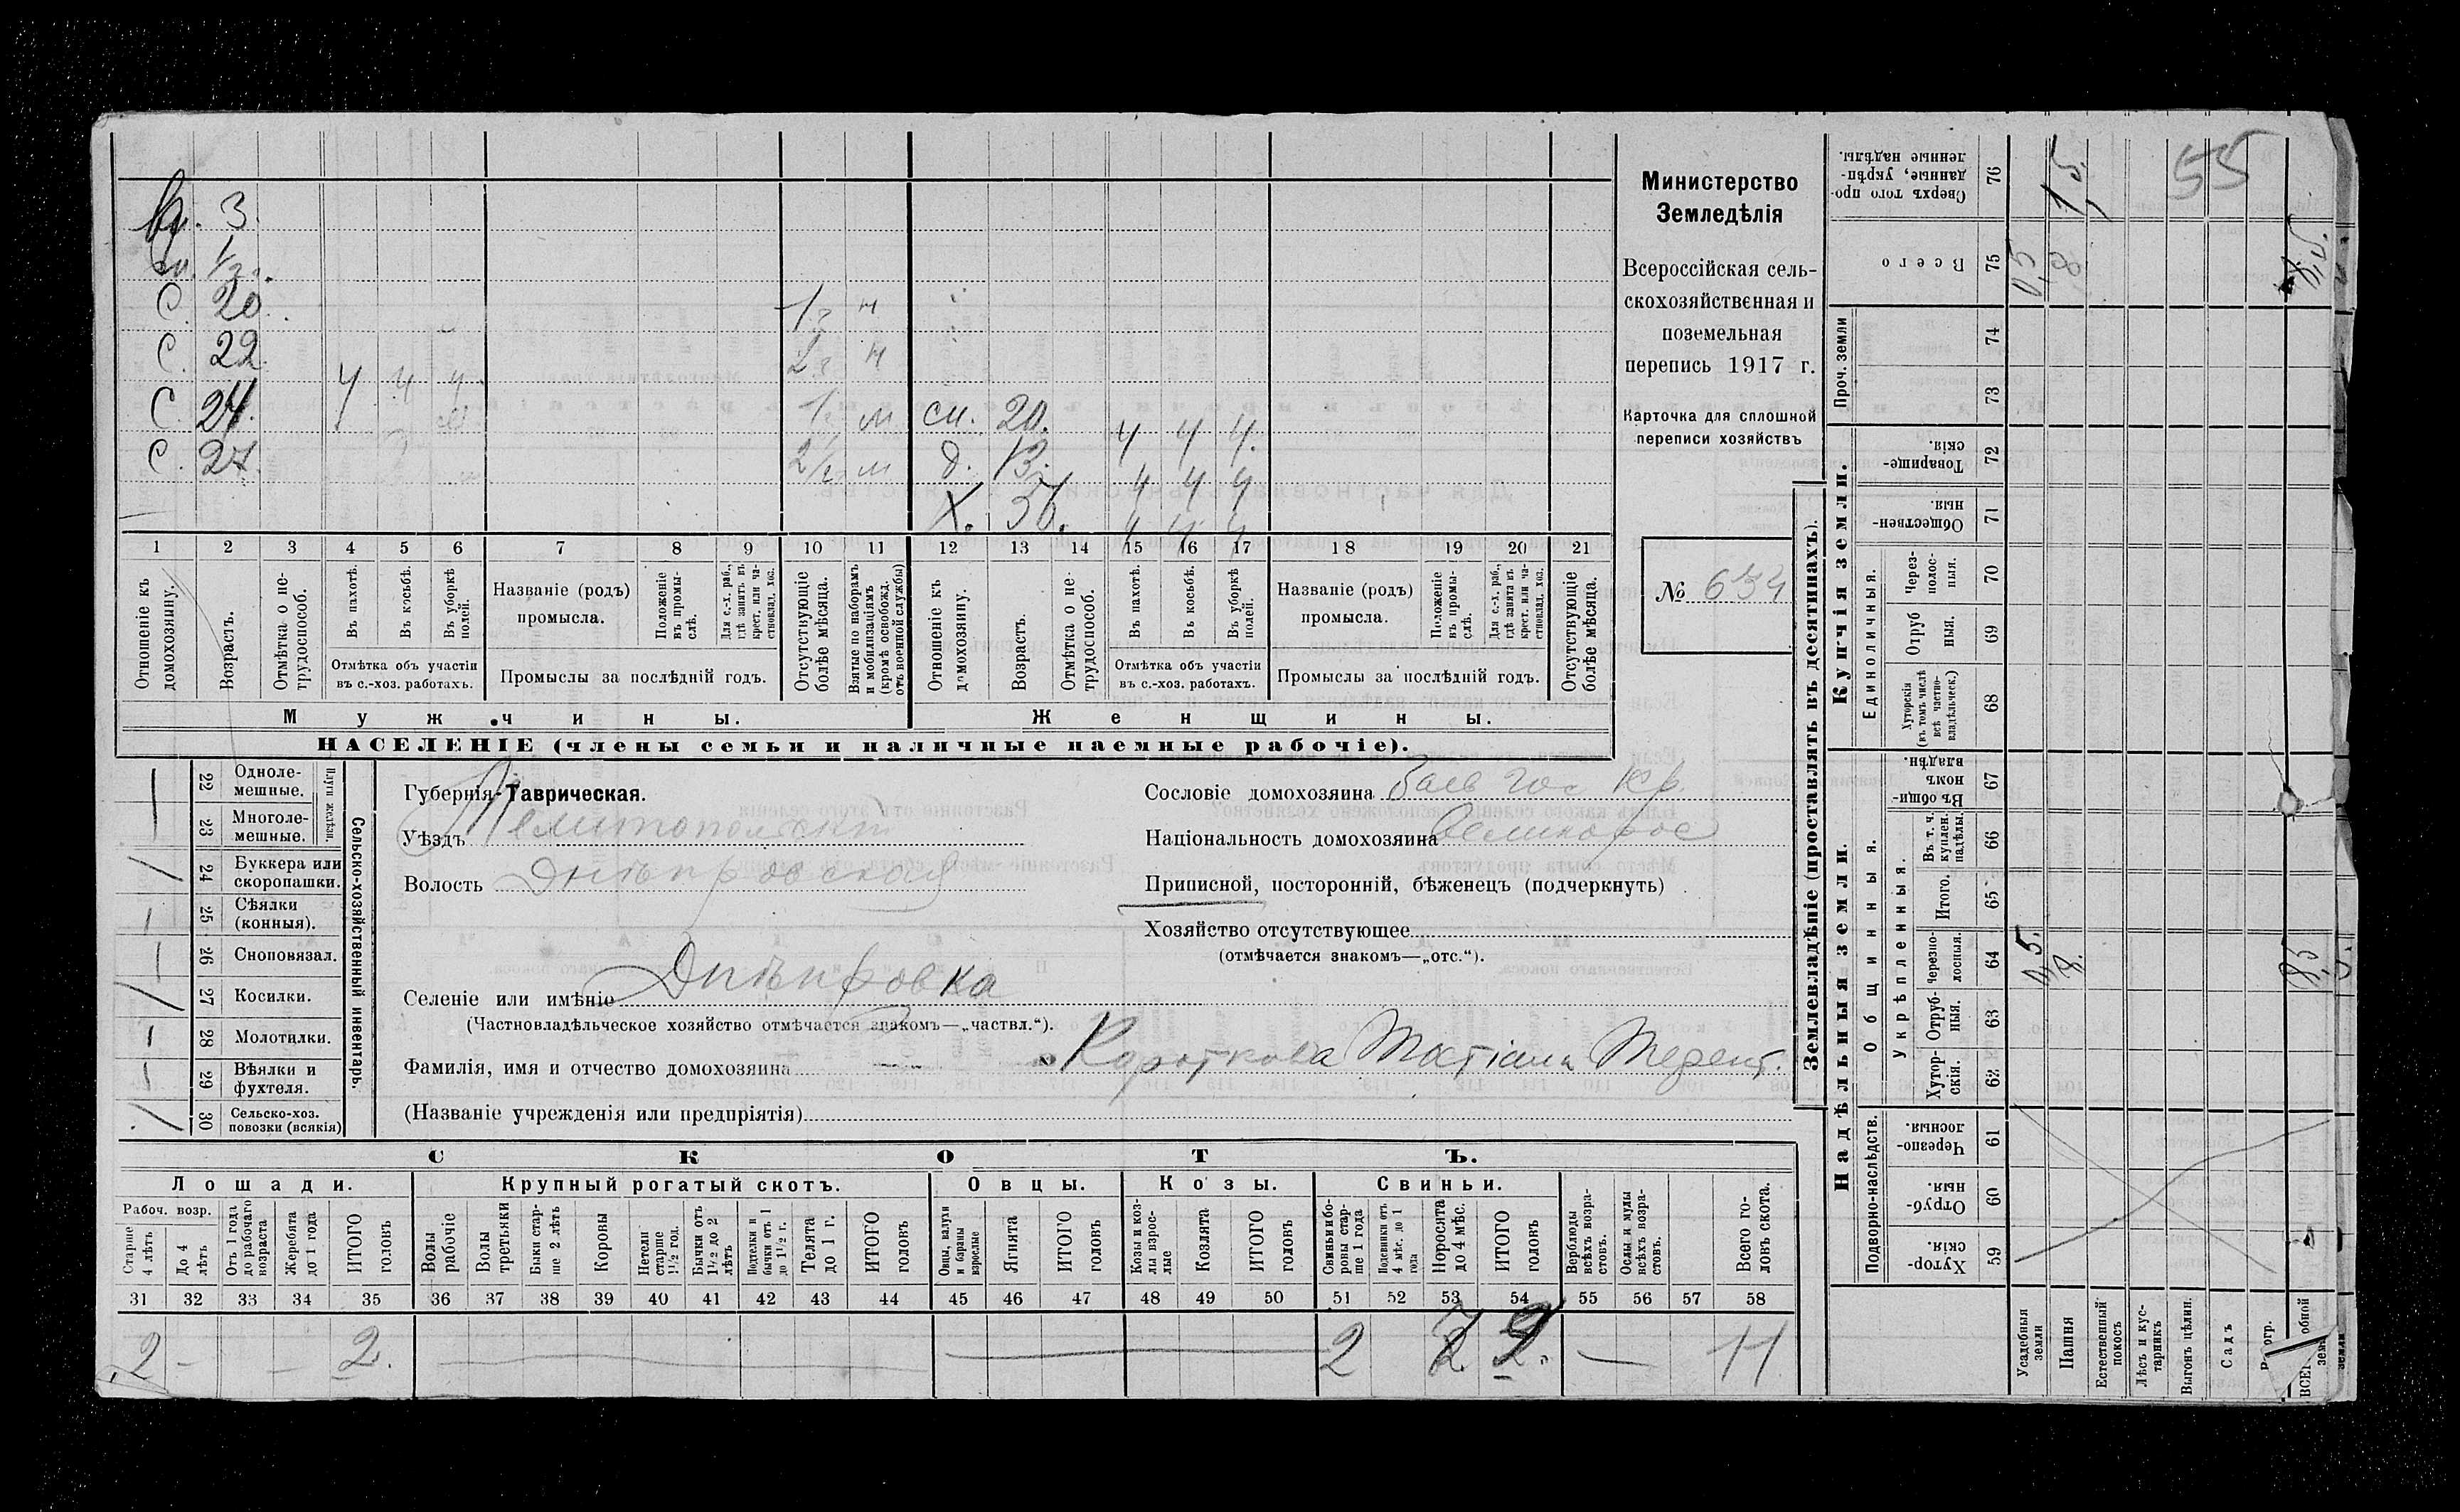 вн. 3.
вн. 1/2.
С. 20. 1 г. н
С. 22. 2 г. н
С. 24. ч ч ч 1 г. м сн. 20. ч ч ч.
С. 27. 2 1/2 м д. 13. ч ч ч
Х. 56. ч ч ч
1 2 3 4 5 6 7 8 9 10 11 12 13 14 15 16 17 18 19 20 21
Отношеніе къ домохозяину.
Возрастъ.
Отмѣтка о не-трудоспособ.
Въ пахотѣ.
Въ косьбѣ.
Въ уборкѣ полей.
Отмѣтка объ участіи въ с.-хоз. работахъ.
Названіе (родъ) промысла.
Положеніе въ промы-слѣ.
Для с.-х. раб., гдѣ занятъ въ крест. или ча-стновлад. хоз.
Промыслы за послѣдній годъ.
Отсутствующіе болѣе мѣсяца.
Взятые по наборамъ и мобилизаціямъ (кромѣ освобожд. отъ военной службы)
Отношеніе къ домохозяину.
Возрастъ.
Отмѣтка о не-трудоспособ.
Въ пахотѣ.
Въ косьбѣ.
Въ уборкѣ полей.
Отмѣтка объ участіи въ с.-хоз. работахъ.
Названіе (родъ) промысла.
Положеніе въ промы-слѣ.
Для с.-х. раб., гдѣ занята въ крест. или ча-стновлад. хоз.
Промыслы за послѣдній годъ.
Отсутствующіе болѣе мѣсяца.
Мужчины. Женщины.
НАСЕЛЕНІЕ (члены семьи и наличные наемные рабочіе).
Министерство
Земледѣлія
Всероссійская сель-
скохозяйственная и
поземельная
перепись 1917 г.
Карточка для сплошной
переписи хозяйствъ
№ 634
22 Одноле-мешные.
23 Многоле-мешные.
24 Буккера или скоропашки.
25 Сѣялки (конныя).
26 Сноповязал.
27 Косилки.
28 Молотилки.
29 Вѣялки и фухтеля.
30 Сельско-хоз. повозки (всякія)
Сельско-хозяйственный инвентарь.
Губернія Таврическая.
Уѣздъ Мелитопольскій
Волость Днѣпровская
Селеніе или имѣніе Днѣпровка
(Частновладѣльческое хозяйство отмѣчается знакомъ—„частвл.“).
Фамилія, имя и отчество домохозяина Короткова Татіана Терент.
(Названіе учрежденія или предпріятія)
Сословіе домохозяина
Національность домохозяина Великорос
Приписной, посторонній, бѣженецъ (подчеркнуть)
Хозяйство отсутствующее
(отмѣчается знакомъ—„отс.“).
СКОТЪ.
Лошади. Крупный рогатый скотъ. Овцы. Козы. Свиньи.
Рабоч. возр.
Старше 4 лѣтъ
До 4 лѣтъ
Отъ 1 года до рабочаго возраста
Жеребята до 1 года
ИТОГО головъ
Волы рабочіе
Волы третьяки
Быки стар-ше 2 лѣтъ
Коровы
Нетели старше 1 1/2 год.
Бычки отъ 1 1/2 до 2 лѣтъ
Подтелки и бычки отъ 1 до 1 1/2 г.
Телята до 1 г.
ИТОГО головъ
Овцы, валухи и бараны взрослые
Ягнята
ИТОГО головъ
Козы и коз-лы взрос-лые
Козлята
ИТОГО головъ
Свиньи и бо-ровы стар-ше 1 года
Подсвинки отъ 4 мѣс. до 1 года
Поросята до 4 мѣс.
ИТОГО головъ
Верблюды всѣхъ возра-стовъ.
Ослы и мулы всѣхъ возра-стовъ.
Всего го-ловъ скота.
31 32 33 34 35 36 37 38 39 40 41 42 43 44 45 46 47 48 49 50 51 52 53 54 55 56 57 58
2 - 2. 2 11
Землевладѣніе (проставлять въ десятинахъ).
Надѣльныя земли. Купчія земли.
Сверхъ того про-данные, укрѣп-ленные надѣлы. 76 1,5. 55
Всего 75 0,5 8 8,5.
Проч. земли 74
73
Товарище-скія. 72
Обществен-ныя. 71
Единоличныя.
Через-полос-ныя. 70
Отруб-ныя. 69
Хуторскія (въ томъ числѣ всѣ частно-владѣльческ.) 68
Общинныя.
Въ общин-номъ владѣн. 67
Укрѣпленныя.
Въ т. ч. куплен. надѣлы. 66
Итого. 65
Черезпо-лосныя. 64 0,5. 8. 8,5
Отруб-ныя. 63
Хутор-скія. 62
Подворно-наслѣдств.
Черезпо-лосныя. 61
Отруб-ныя. 60
Хутор-скія. 59
Усадебныя земли
Пашня
Естественный покосъ
Лѣсъ и кус-тарникъ
Выгонъ цѣлин.
Садъ